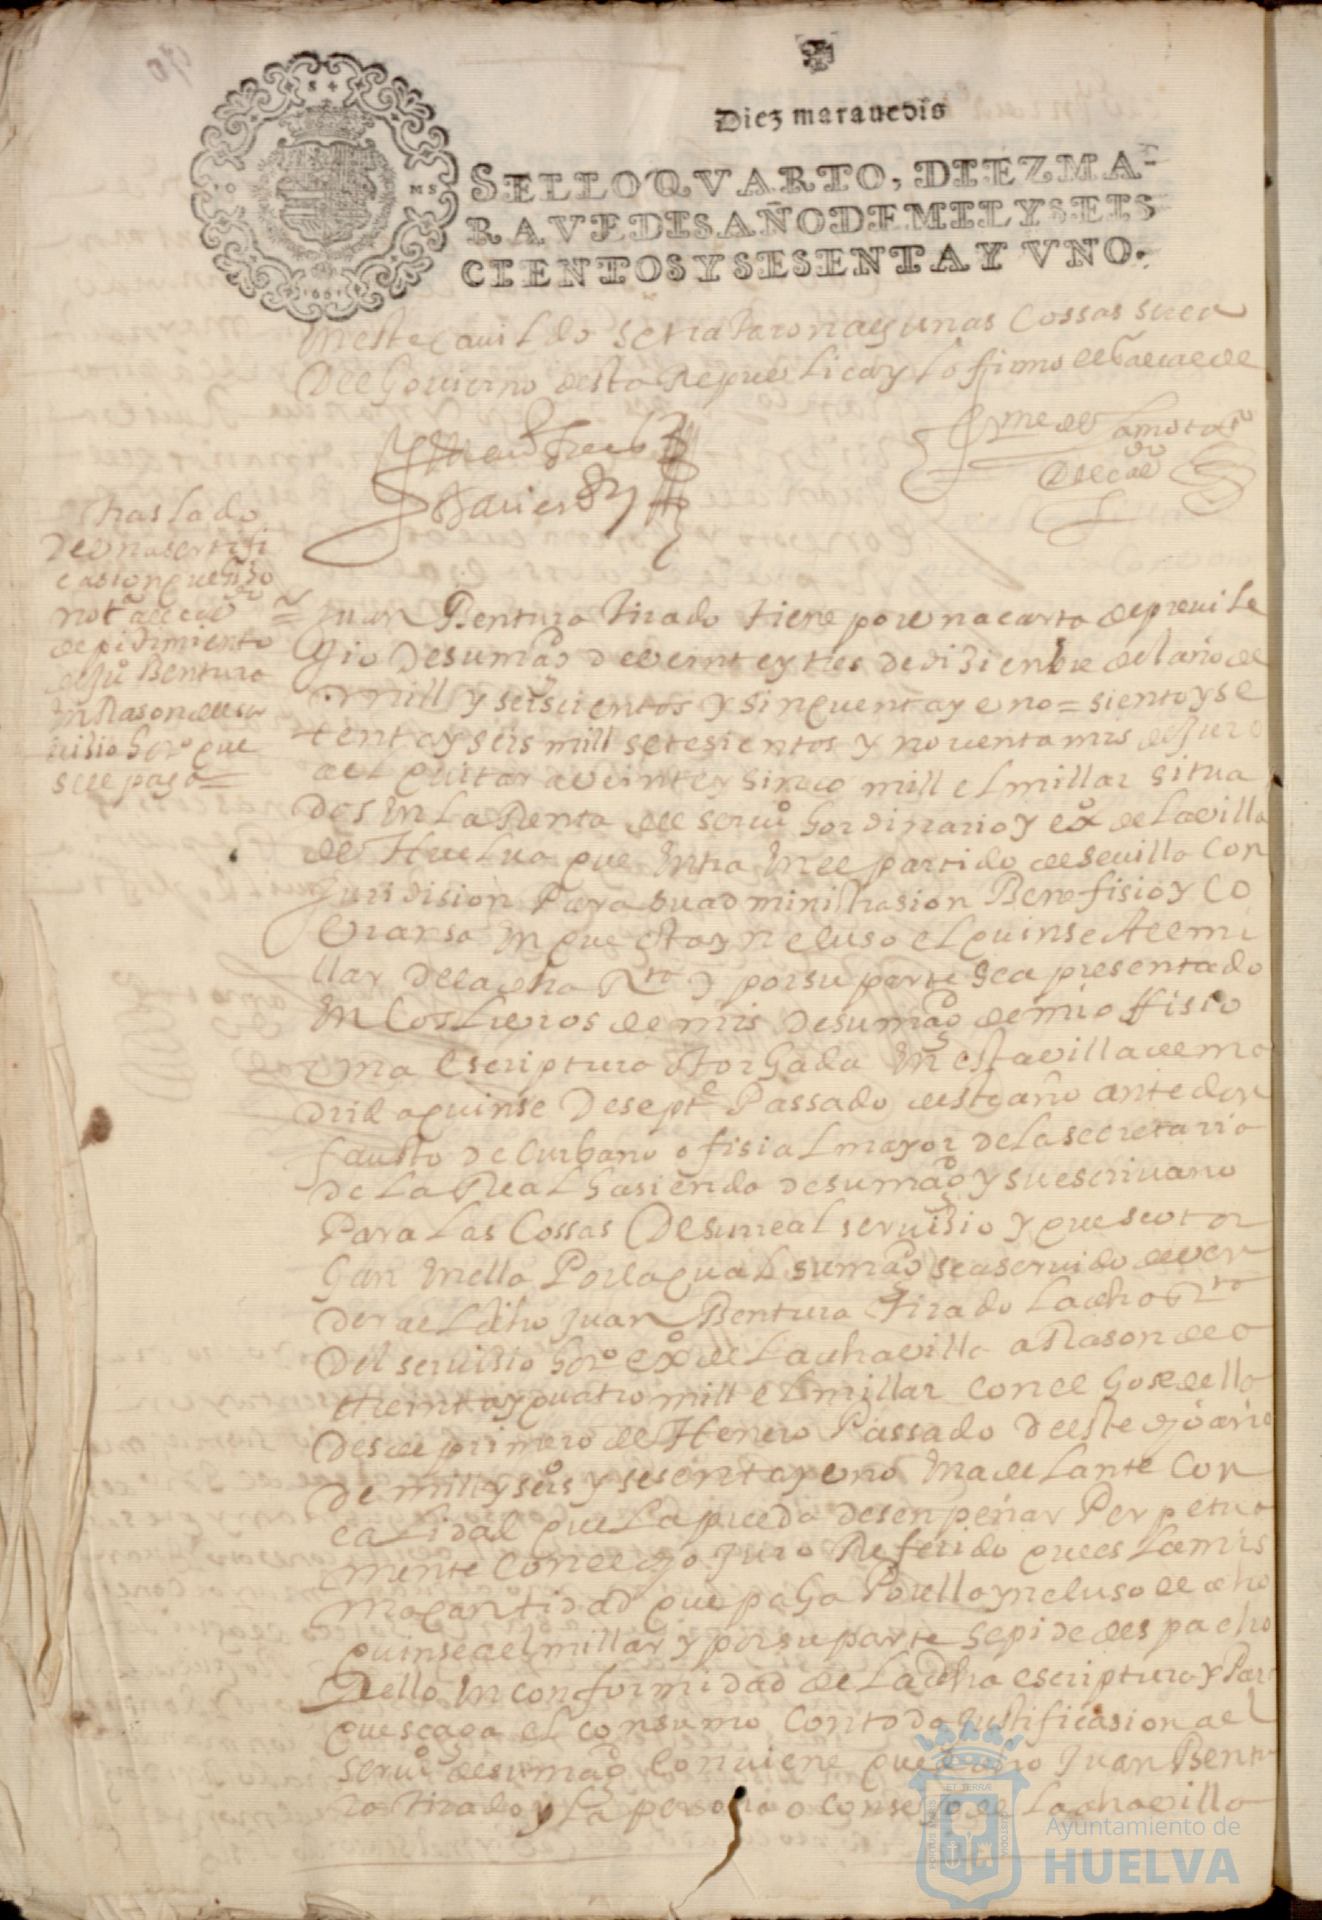 Diez marauedis
SELLO QVARTO, DIEZ MA-
RAVEDIS AÑO DE MIL Y SEIS
CIENTOS Y SESENTA Y VNO.
En este cauildo se trataron algunas cossas
del Gouierno desta Republica y lo firmo
Xauier
traslado
de una sertifi
casion que hiso
de pidimiento
de Ju° Bentura
en Rason de ser
uisio hor° que
se le pago =
= Juan Bentura tirado tiene por una carta de preuile
gio de su magd de veinte y tres de disienbre del año de
mill y seiscientos y sinquenta y uno = siento y se
tenta y seis mill setesientos y nouenta mrs de juro
al quitar a veinte y sinco mill el millar situa
dos en la Renta del seruo hordinario y exo de la villa
de Huelua que entra en el partido de seuilla con
jurisdision para su administrasion Benefisio y co
bransa en que esta yncluso el quinse al mi
llar de la dha Rta y por su parte se a presentado
en los libros de mrs de su magd de mi offisio
una escriptura otorgada en esta villa de ma
drid a quinse de septe Passado deste año ante don
fausto de ofisial mayor de la secretaria
de la Real hasienda de su magd y su escriuano
Para las cossas de su real seruisio y que se otor
gan en ella Por la qual su magd se a seruido de ven
der al dicho Juan Bentura tirado la dha Rta
del seruisio hor° exo de la dha villa a Rason de
treinta y quatro mill el millar con el gose dello
desde primero de Henero Passado deste dho año
de mill y seiso y sesenta y uno en adelante con
calidad que la pueda desenpeñar Perpetua
mente con el dho juro Referido que es la mis
ma cantidad que paga Por ello yncluso el dho
quinse al millar y por su parte se pide despacho
dello en conformidad de la dha escriptura y Par
que se aga el consumo con toda justificasion al
seruo de su magd conuiene que dho Juan Bentu
ra tirado y la persona o consejo de la dha villa
Ayuntamiento de
HUELVA